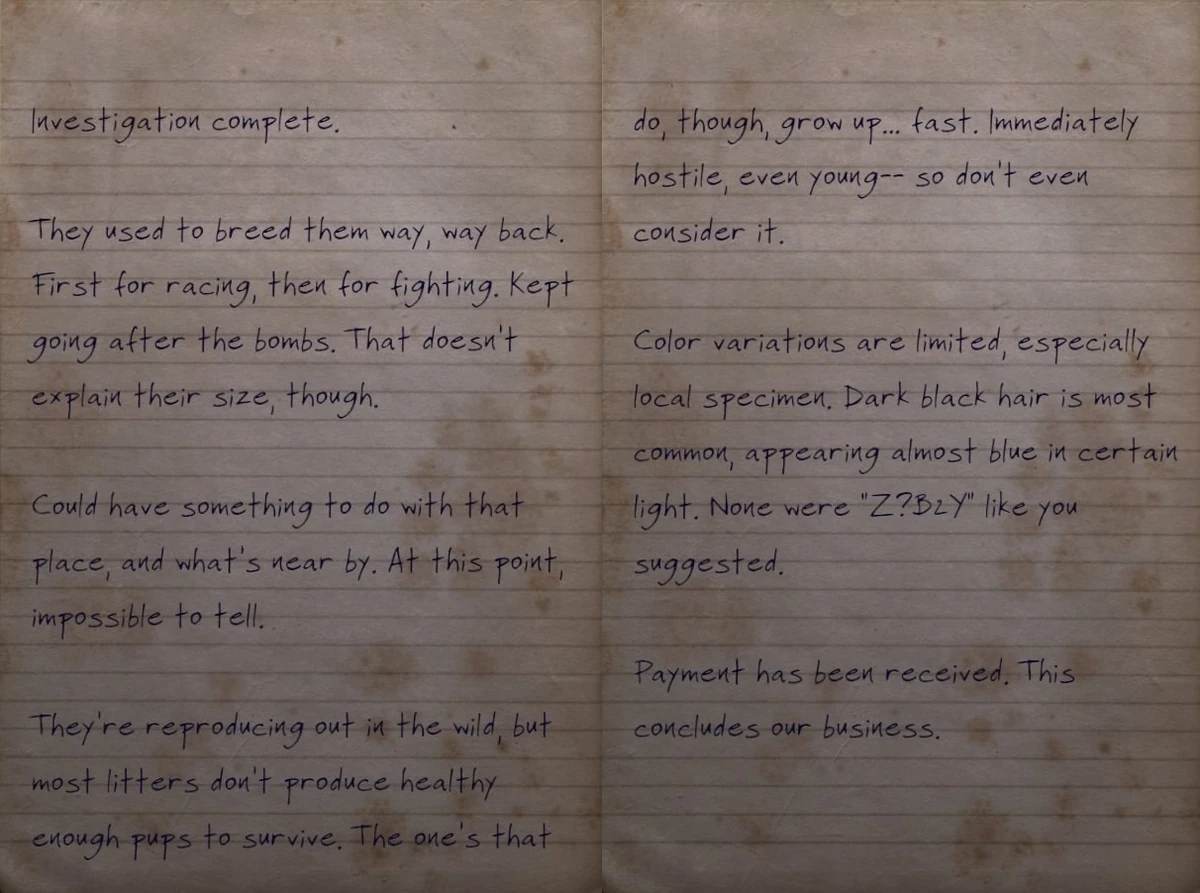 Investigation complete.
They used to breed them way, way back.
First for racing, then for fighting. Kept
going after the bombs. That doesn't
explain their size, though.
Could have something to do with that
place, and what's near by. At this point,
impossible to tell.
They're reproducing out in the wild, but
most litters don't produce healthy
enough pups to survive. The one's that
do, though, grow up... fast. Immediately
hostile, even young-- so don't even
consider it.
Color variations are limited, especially
local specimen. Dark black hair is most
common, appearing almost blue in certain
light. None were "Z?B2Y" like you
suggested.
Payment has been received. This
concludes our business.